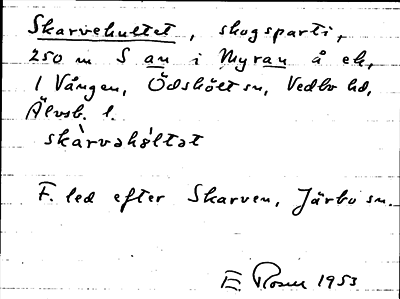 Skarvehultet, skogsparti,
250 m S an i Myran å ek,
1 Vången, Ödskölt sn, Vedbo hd,
Älvsb. l.
skàrvəhə́ltət
F. led efter Skarven, Järbo sn.
E. Rosen 1953